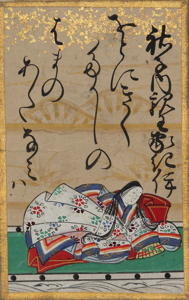 祐子内親王家紀伊
をとにきく
たかしの
はまの
あたなみハ